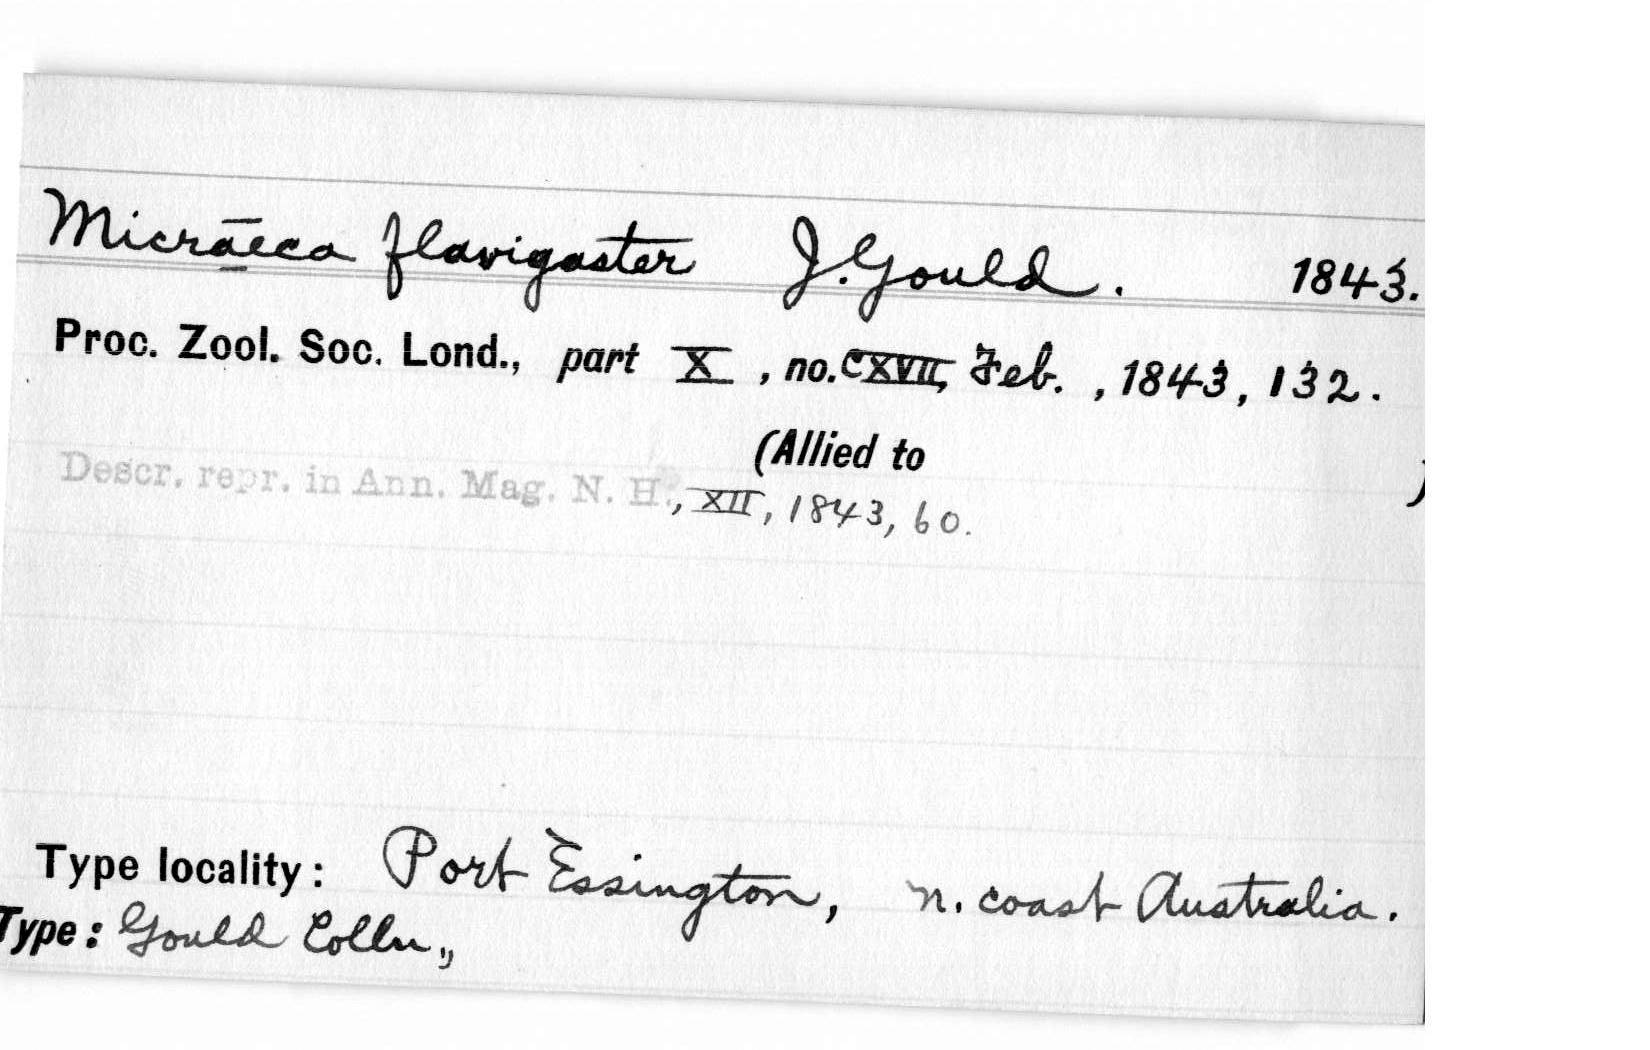 Micrāeca flavigaster J. Gould. 1843.
Proc. Zool. Soc. Lond., part X, no. CXVII, Feb., 1843, 132.
(Allied to )
Descr. repr. in Ann. Mag. N. H., XII, 1843, 60.
Type locality: Port Essington, n. coast Australia.
Type: Gould Colln.,